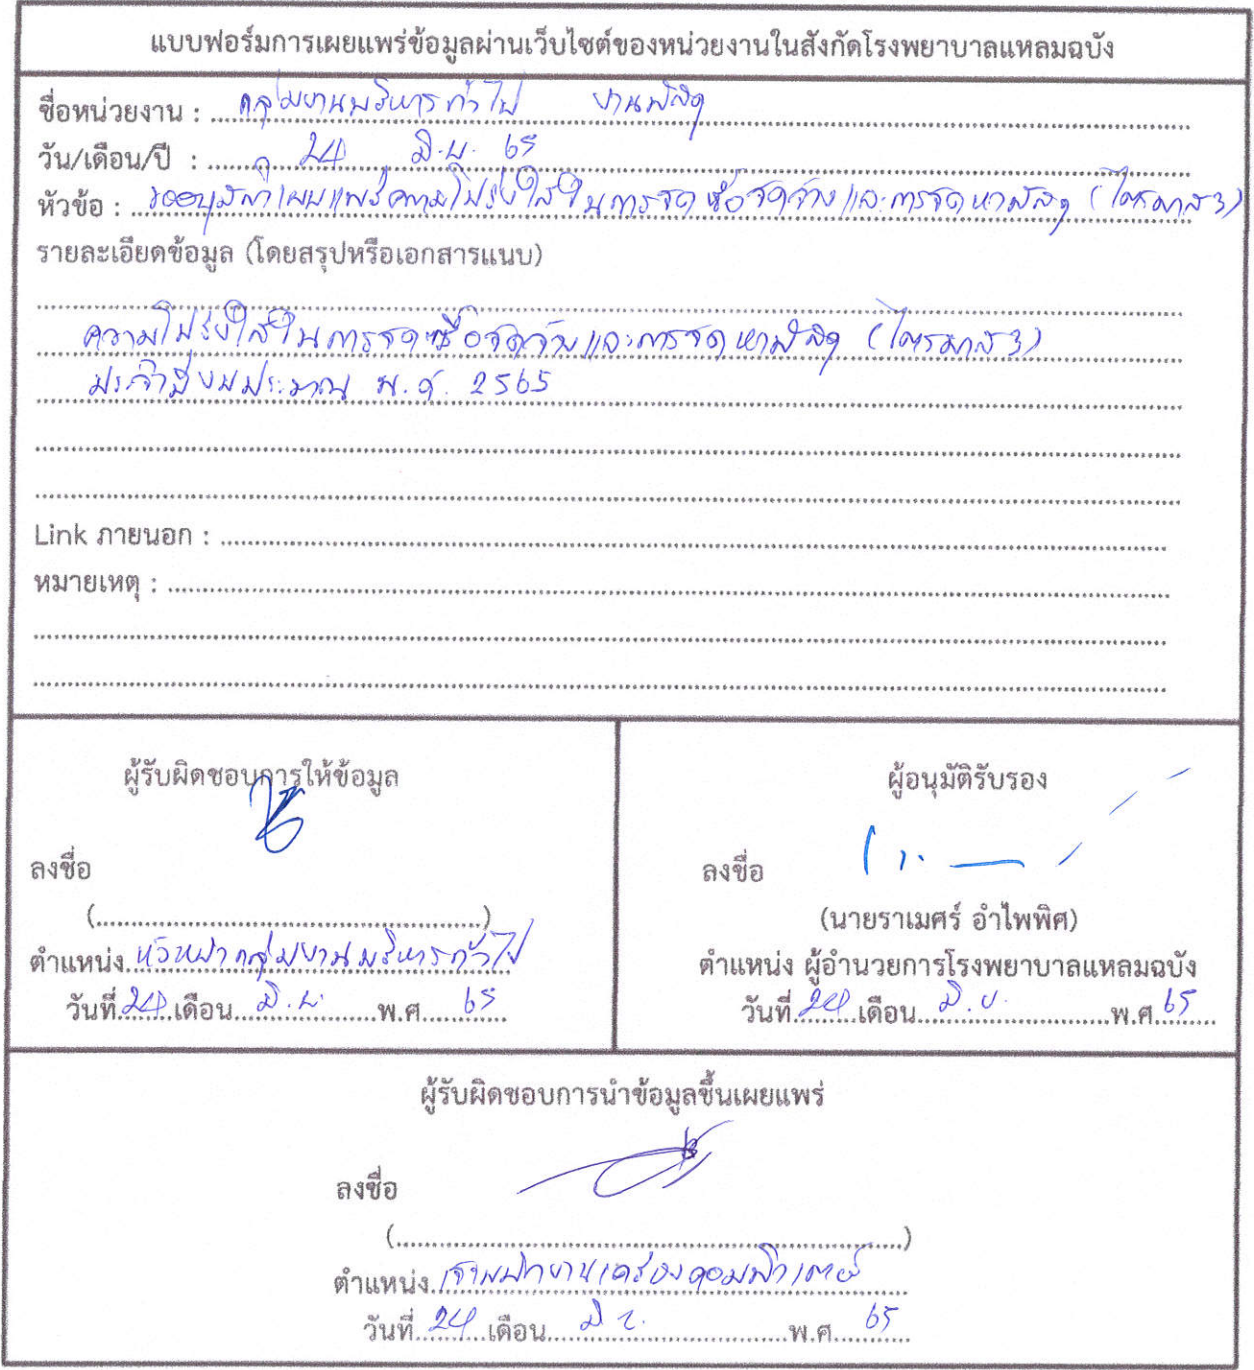 แบบฟอร์มการเผยแพร่ข้อมูลผ่านเว็บไซต์ของหน่วยงานในสังกัดโรงพยาบาลแหลมฉบัง
ชื่อหน่วยงาน : กลุ่มงานบริหารทั่วไป งานพัสดุ
วัน/เดือน/ปี : 24 มิ.ย. 65
หัวข้อ : ขออนุมัติเผยแพร่ความโปร่งใสในการจัดซื้อจัดจ้างและการจัดหาพัสดุ (ไตรมาส 3)
รายละเอียดข้อมูล (โดยสรุปหรือเอกสารแนบ)
ความโปร่งใสในการจัดซื้อจัดจ้างและการจัดหาพัสดุ (ไตรมาส 3)
ประจำปีงบประมาณ พ.ศ. 2565
Link ภายนอก :
หมายเหตุ :
ผู้รับผิดชอบการให้ข้อมูล
ลงชื่อ
(..............................)
ตำแหน่ง หัวหน้ากลุ่มงานบริหารทั่วไป
วันที่ 24 เดือน มิ.ย. พ.ศ. 65
ผู้อนุมัติรับรอง
ลงชื่อ
(นายราเมศร์ อำไพพิศ)
ตำแหน่ง ผู้อำนวยการโรงพยาบาลแหลมฉบัง
วันที่ 24 เดือน มิ.ย. พ.ศ. 65
ผู้รับผิดชอบการนำข้อมูลขึ้นเผยแพร่
ลงชื่อ
(..............................)
ตำแหน่ง เจ้าพนักงานเครื่องคอมพิวเตอร์
วันที่ 24 เดือน มิ.ย. พ.ศ. 65